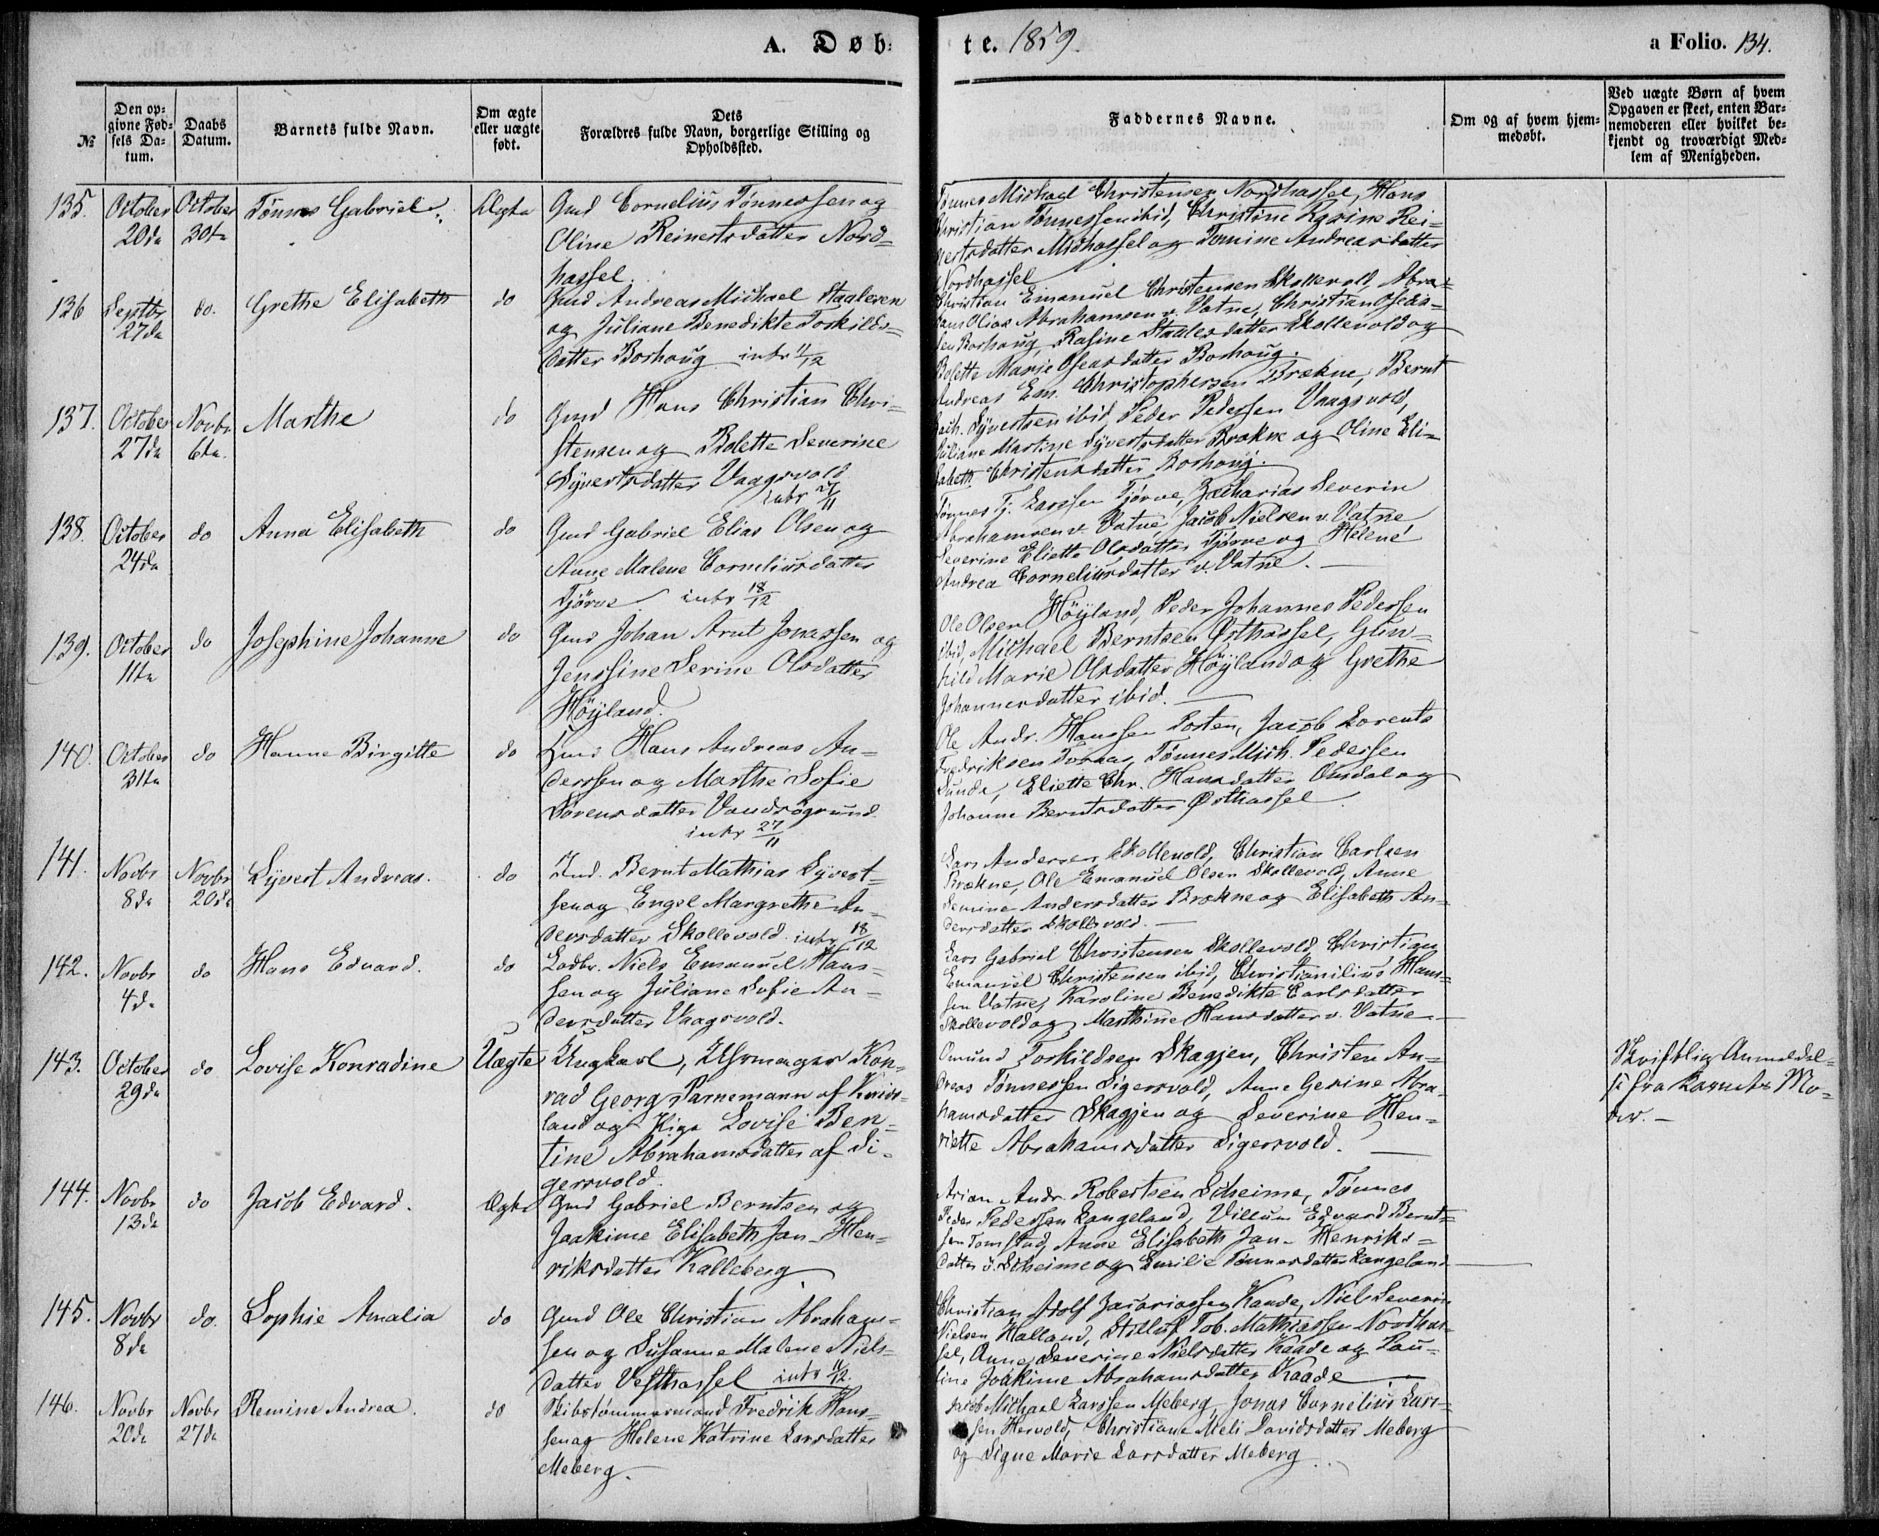 A. Døb-
te. 1859
a Folio. 134.
№
Den op-
givne Fød-
sels Da-
tum.
Daabs
Datum.
Barnets fulde Navn.
Om ægte
eller uægte
født.
Dets
Forældres fulde Navn, borgerlige Stilling og
Opholdssted.
Faddernes Navne.
Om og af hvem hjem-
medøbt.
Ved uægte Børn af hvem
Opgaven er skeet, enten Bar-
nemoderen eller hvilket be-
kjendt og troværdigt Med-
lem af Menigheden.
135.
October
20de
October
30te
Tönnes Gabriel.
Ægte
Gmd Cornelius Tönnessen og
Oline Reinertsdatter Nord-
hassel.
Tönnes Michael Christensen Nordhassel, Hans
Christian Tönnessen ibid, Christine Karine Rei-
nertsdatter Midhassel og Tomine Andreasdatter
Nordhassel
136
Septbr
27de
do.
Grethe Elisabeth
do
Gmd Andreas Michael Staalesen
og Juliane Benedikte Torkilds-
datter Borhoug intr 11/12
Christian Emanuel Christensen Skollevold, Abra-
hams Olias Abrahamsen v. Vatne, Christian Oseas-
sen Borhoug, Rasine Staalesdatter Skollevold og
Bolette Marie Oseasdatter Borhoug.
137.
October
27de
Novbr
6te.
Marthe
do
Gmd Hans Christian Chri-
stensen og Bolette Severine
Syvertsdatter Vaagsvold
intr 27/11
Andreas Em. Christophersen Brækne, Bernt
Math. Syvertsen ibid, Peder Pedersen Vaagsvold,
Juliane Martine Syvertsdatter Brækne og Oline Eli-
sabeth Christensdatter Borhoug.
138.
October
24de
do
Anna Elisabeth
do
Gmd Gabriel Elias Olsen og
Anne Malene Corneliusdatter
Tjörve intr 18/12
Tönnes T. Larssen Tjörve, Zacharias Severin
Abrahamsen v. Vatne, Jacob Nielsen v. Vatne
Severine Eliette Olsdatter Tjörve og Helene
Andrea Corneliusdatter v. Vatne. —
139.
October
11te
do
Josephine Johanne
do
Gmd Johan Arnt Jonassen og
Jenssine Serine Olsdatter
Höyland.
Ole Olsen Höyland, Peder Johannes Pedersen
ibid, Michael Berntsen Østhassel, Gun-
hild Marie Olsdatter Höyland og Grethe
Johannesdatter ibid. —
140.
October
31te
do
Hanne Birgitte
do
Hmd Hans Andreas An-
derssen og Marthe Sofie
Sörensdatter Vandsögrund
intr 27/11
Ole Andr. Hanssen Torten, Jacob Lorents
Fredriksen Torraas, Tönnes Mich. Pedersen
Lunde, Eliette Chr. Hansdatter Omdal og
Johanne Berntsdatter Østhassel.
141.
Novbr
8de
Novbr
20de
Syvert Andreas.
do
Ind. Bernt Mathias Syvert-
sen og Engel Margrethe An-
dersdatter Skollevold. intr 18/12
Lars Andersen Skollevold, Christian Carlsen
Brækne, Ole Emanuel Olsen Skollevold, Anne
Semine Andersdatter Brækne og Elisabeth An-
dersdatter Skollevold. —
142.
Novbr
4de
do
Hans Edvard.
do
Ledbr. Niels Emanuel Hans-
sen og Juliane Sofie An-
dersdatter Vaagsvold.
Lars Gabriel Christensen Skollevold, Christian
Emanuel Christensen ibid, Christian Hans-
sen Vatne, Karoline Benedikte Carlsdatter
Skollevold og Marthine Hansdatter v. Vatne —
143.
October
29de
do
Lovise Konradine
Uægte
Ungkarl, Uhrmager Kon-
rad Georg Parnemann af Kvivs-
land og Pige Lovise Ben-
tine Abrahamsdatter af Si-
gersvold.
Omund Torkildsen Skagjen, Christen An-
dreas Tönnessen Sigersvold, Anne Gesine Abra-
hamsdatter Skagjen og Severine Hen-
riette Abrahamsdatter Sigersvold. —
Skriftlig Anmeldel-
se fra Barnets Mo-
der. —
144.
Novbr
13de
do
Jacob Edvard.
Ægte
Gmd Gabriel Berntsen og
Joakime Elisabeth Jan-Hen-
riksdatter Kalleberg.
Arian Andr. Robertsen Scheime, Tönnes
Peder Pedersen Langeland, Villum Edvard Bernt-
sen Tomstad, Anne Elisabeth Jan-Henriks-
datter v. Scheime og Emilie Tönnesdatter Langeland
145.
Novbr
8de
do.
Sophie Amalia
do
Gmd Ole Christian Abraham-
sen og Susanne Malene Niels-
datter Vesthassel intr 11/12.
Christian Adolf Zacariassen Kaade, Niels Severin
Nielsen Halland, Tob. Mathiassen Nordhas-
sel, Anne Severine Nielsdatter Kaade og Pau-
line Joakime Abrahamsdatter Kaade —
146.
Novbr
20de
Novbr
27de
Remine Andrea.
do
Skibstömmermand Fredrik Hans-
sen og Helene Katrine Larsdatter
Meberg.
Jacob Michael Larssen Meberg, Jonas Cornelius Lars-
sen Hervold, Christiane Meli Davidsdatter Meberg
og Signe Marie Larsdatter Meberg